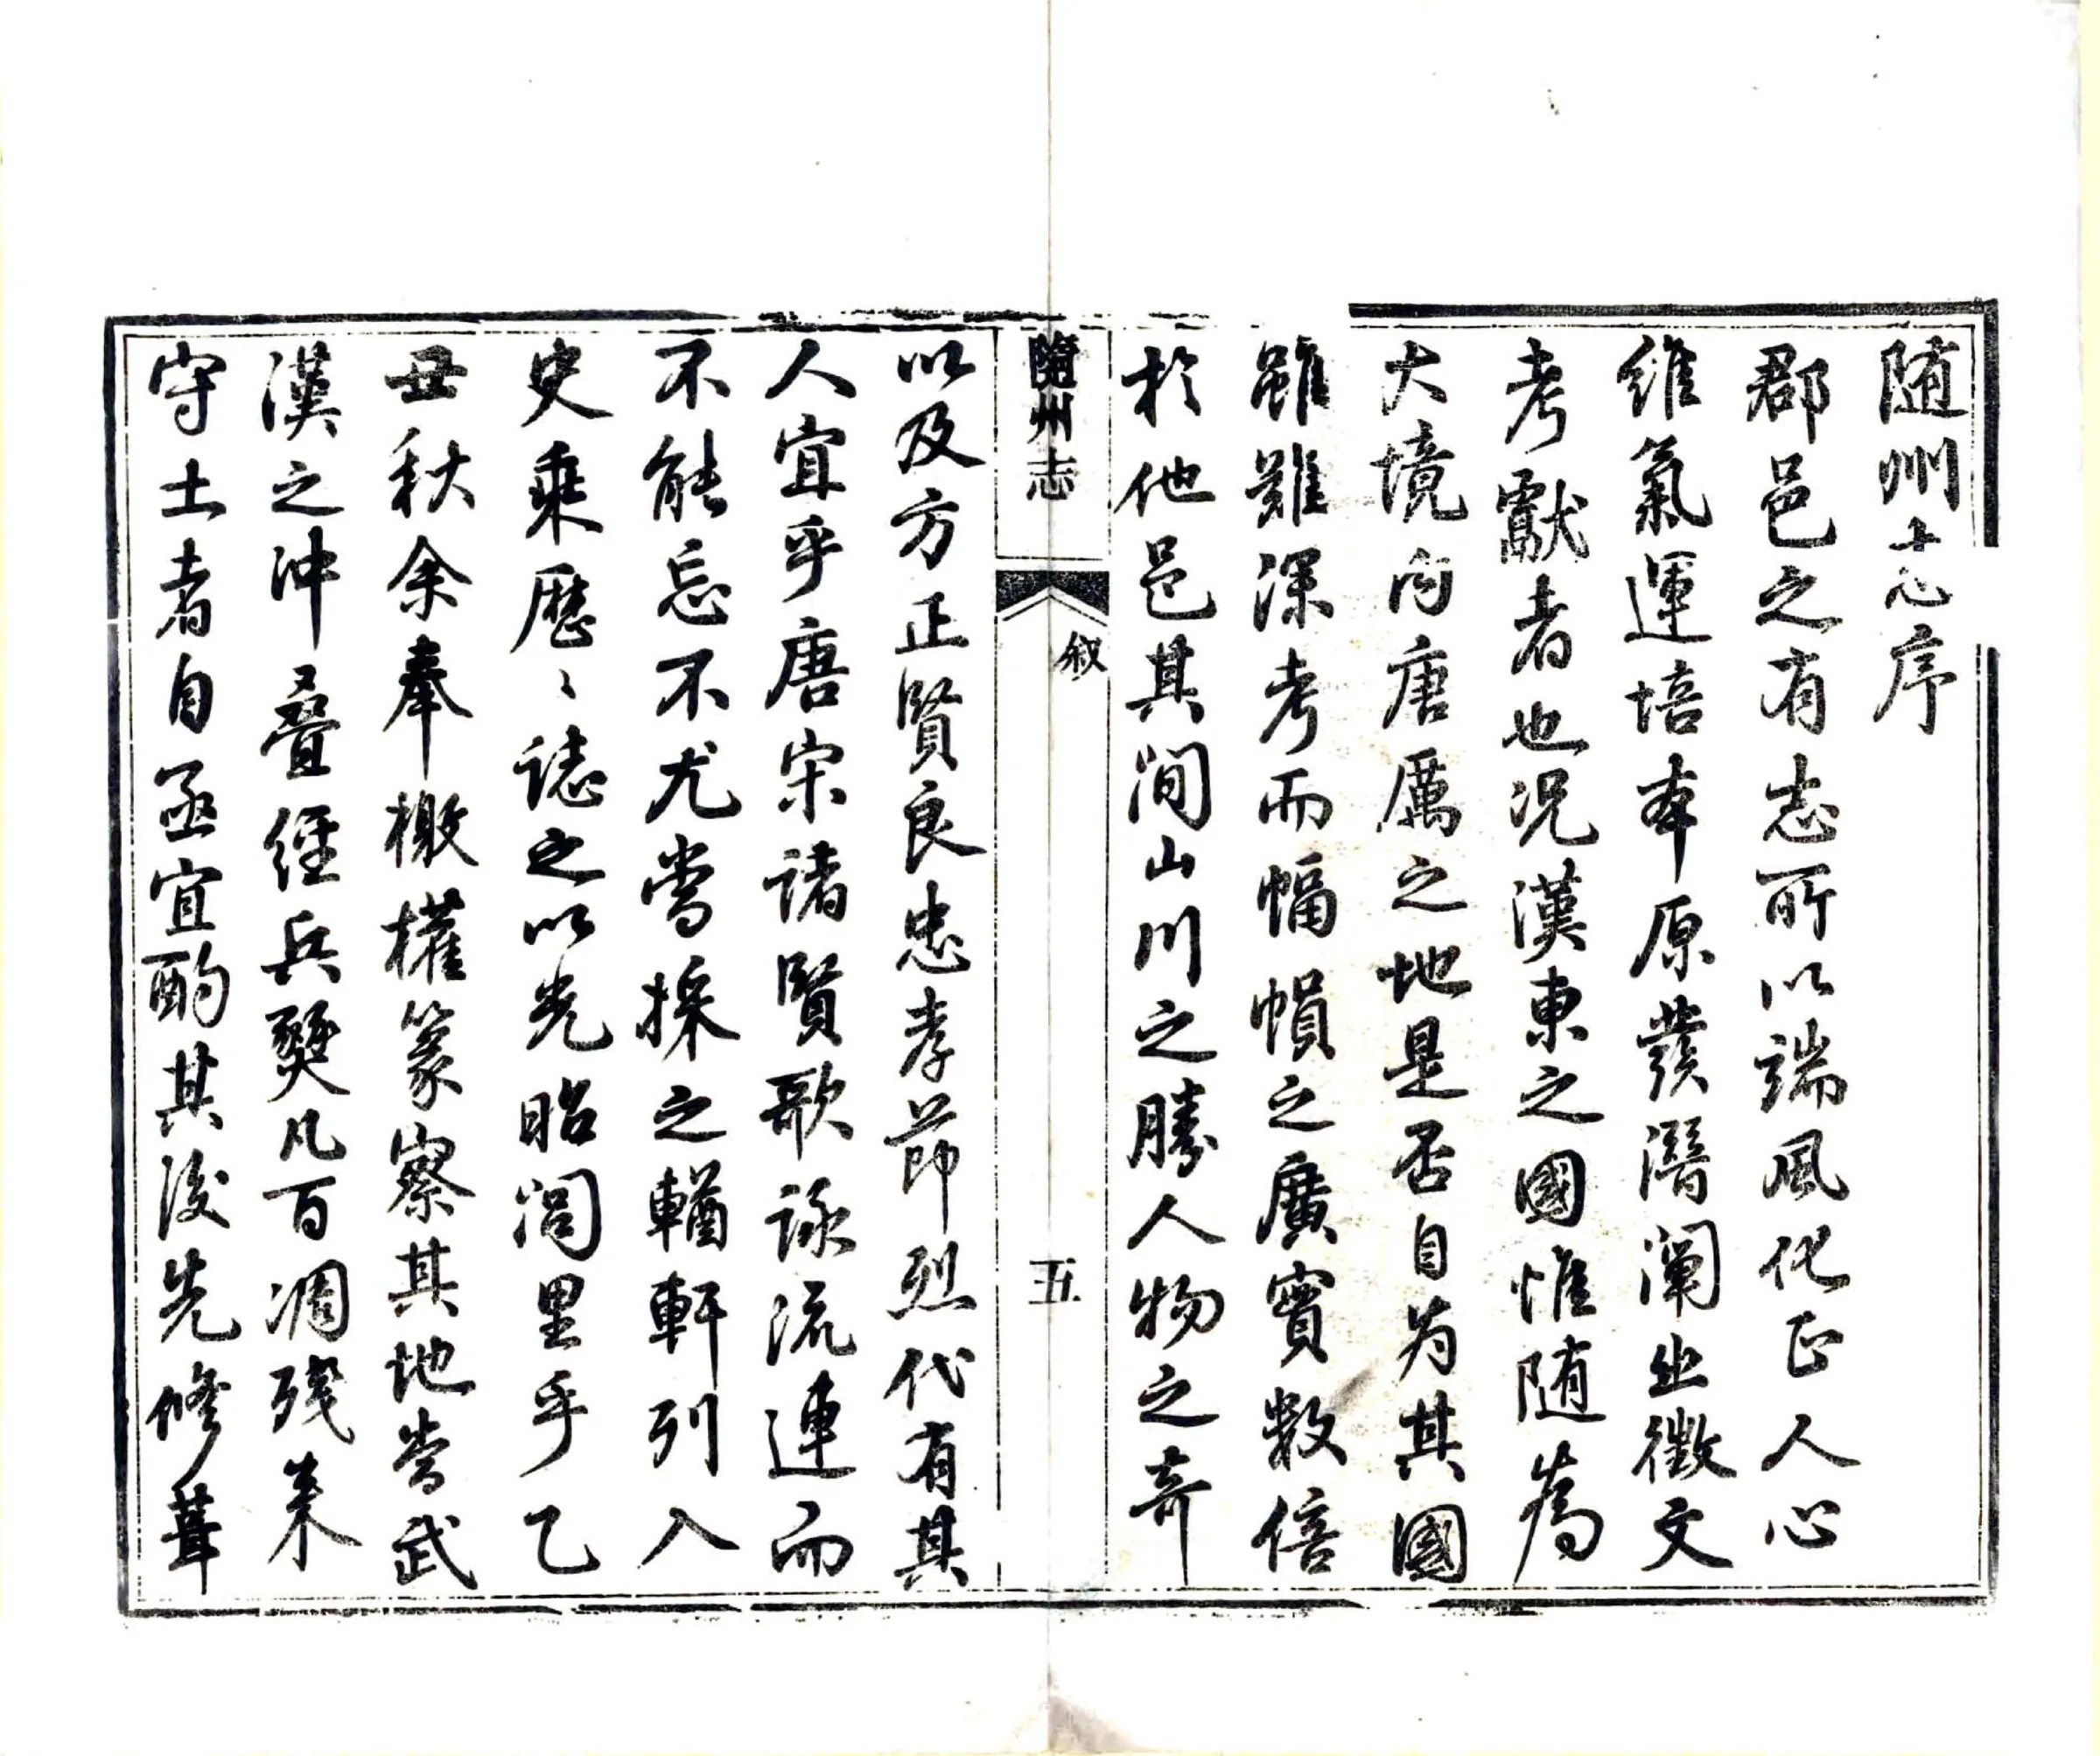 随州志序
郡邑之有志所以端風化正人心
維氣運培本原發潛闡幽徵文
考獻者也况漢東之國惟随為
大境内唐厲之地是否自为其國
雖難深考而幅幀之廣實數倍
於他邑其間山川之勝人物之奇
隨州志
敘
五
以及方正賢良忠孝節烈代有其
人宜乎唐宋諸賢歌詠流連而
不能忘不尤當採之輶軒列入
史乘歷〻誌之以光昭閭里乎乙
丑秋余奉檄權篆察其地當武
漢之冲叠經兵燹凡百凋殘来
守土者自亟宜酌其後先修葺